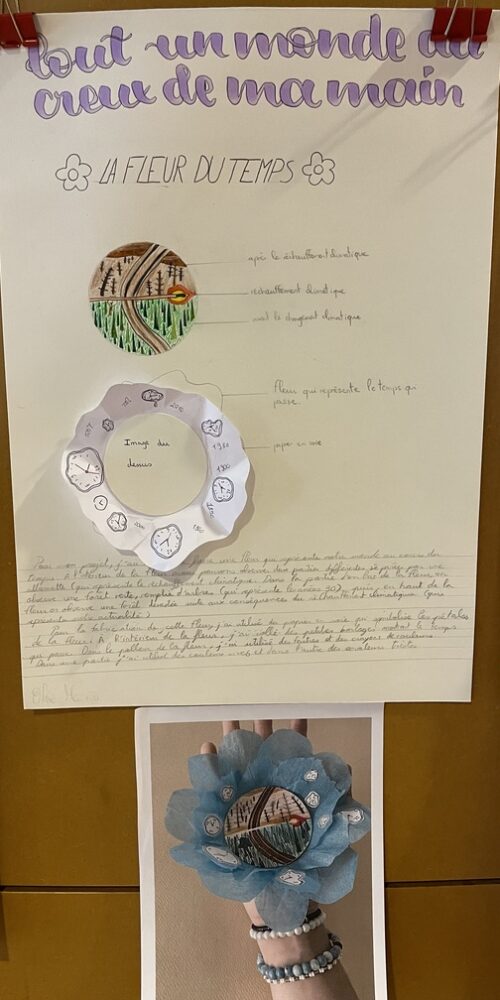 tout un monde au
creux de ma main
LA FLEUR DU TEMPS
après le réchauffement climatique
réchauffement climatique
avant le changement climatique
fleur qui représente le temps qui
passe.
papier en soie
Image du
dessus
1980
1900
Pour mon projet, j'ai une fleur qui représente notre monde au cours du
temps. A l'intérieur de la fleur nous pouvons observer deux parties différentes séparées par une
allumette (qui représente le réchauffement climatique. Dans la partie d'en bas de la fleur on
observe une forêt verte, remplie d'arbre (qui représente les années 30), puis, en haut de la
fleur on observe une forêt dévastée suite aux conséquences du réchauffement climatique (qui
représente notre actualité)
Pour la fabrication de cette fleur j'ai utilisé du papier en soie qui symbolise les pétales
de la fleur. A l'intérieur de la fleur, j'ai collé des petites horloges montrant le temps
qui passe. Dans le pollen de la fleur, j'ai utilisé du feutres et des crayons de couleurs
Dans une partie j'ai utilisé des couleurs vives et dans l'autre des couleurs tristes